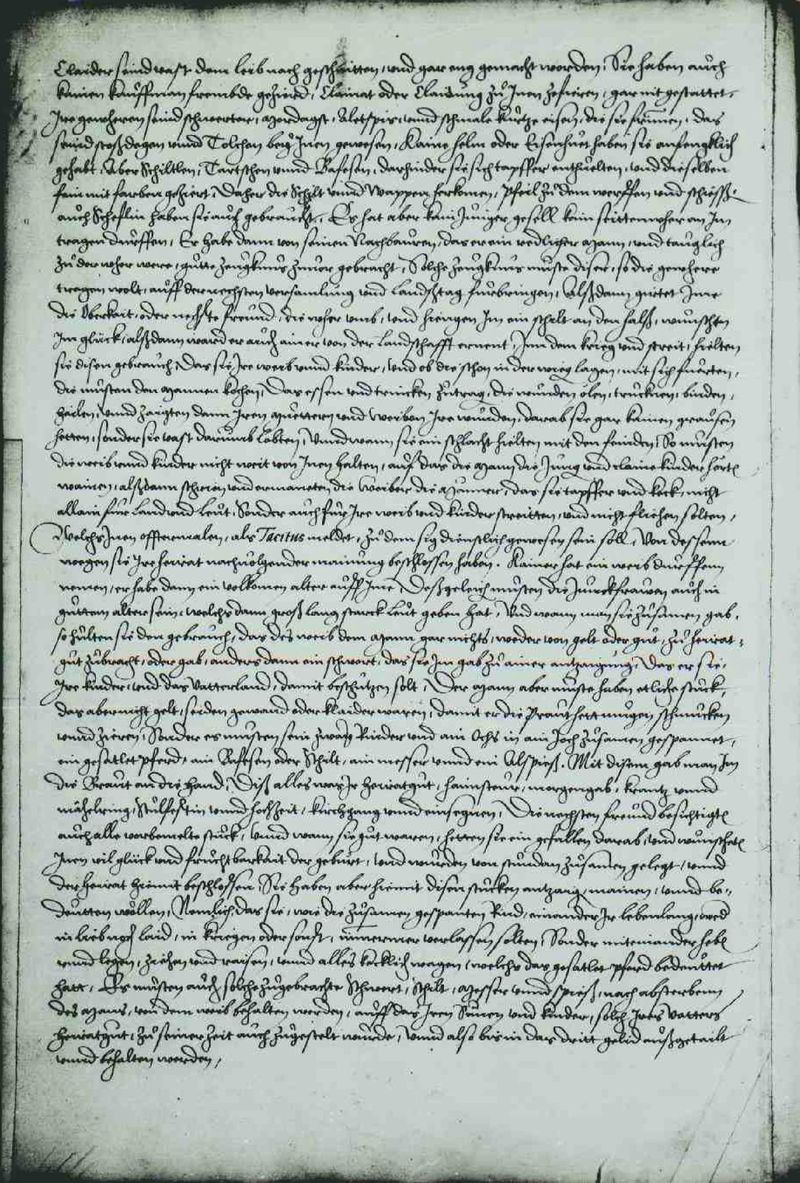 Claider seind vast dem leib nach geschnitten, und gar eng gemacht worden, Sie haben auch
kainen kauffman frembde gezierd, Clainat oder Claidung zu Inen zefieren, gar nit gestattet.
Ire gewoheren seind schwerter, unnd schmale kurtze eisen, die sie frumen, das
seind stoßdegen unnd Tolchen bey Inen gewesen, Kaine helm oder Eisenhuet haben sie anfengklich
gehabt, Aber Schiltlen, Tartschen unnd Pafesen, darhinder sie sich tapffer enthuelten, und dieselben
fein mit farben geziert, Daher die Schilt unnd Wappen herkomen, Pfeil zu dem werffen und schiessen
auch Scheflin haben sie auch gebraucht, Es hat aber kain Junger gesell kain seittenwoher an Im
tragen dürffen, Er habe dann von seinen Nachbauren, das er ein redlicher Mann, und tauglich
zu der woher were, gute zeugknus zuvor gebracht, Solche zeugknus muste diser, so die gewehere
tragen wolt, auff der nechsten versamlung und Landstag fürbringen, Alßdann gürtet Ime
die Oberkait, oder nechste freund, die woher umb, und hiengen Im ein schilt an den halß, wunschten
Im glück, alßdann ward er auch ainer von der Landschafft ernent, Inn dem krieg und streit, hielten
sie disen gebrauch, Das sie Ire weib und kinder, und ob die schon in der wieg lagen, mit sich fuerten,
die musten den Mannen kochen, Das essen und trincken zutrag, die wunden ölen, trucknen, binden,
hailen, Unnd zaigten dann Iren Muettern und Weibern Ire wunden, darab sie gar kainen grausen
hetten, sonder sie vast darumb lobten, Unnd wann sie ein schlacht hielten mit den feinden, So musten
die weib und kinder nicht weit von Inen halten, auf das die Mann die Jung und klaine kinder hört
wainen, alßdann schrien und ermaneten die Weiber die Männer, das sie tapffer und keck, nicht
allain für Land und Leut, Sonder auch für Ire weib und kinder streitten, und nicht fliehen solten,
Welchs Inen offtermalen, als Tacitus meldet, zu dem sig dienstlich gewesen sein soll, Von dessent
wegen sie Ire heirat nachvolgender mainung beschlossen haben. Kainer hat ein weib dürffen
nemen, er habe dann ein volkomen alter auff Ime, Deßgeleich musten die Junckfrawen auch in
guttem alter sein, welchs dann groß lang starck Leut geben hat, Und wann man sie zusamen gab,
so hülten sie den gebrauch, das des weib dem Mann gar nichts, weder von gelt oder gut, zu heirat-
gut zubracht, oder gab, anders dann ein schwert, das sie Im gab zu ainer antzaigung, Das er sie,
Ire kinder, und das Vatterland, damit beschutzen solt, Der Mann aber muste haben etliche stück,
das aber nicht gelt, seiden gewand oder klaider waren, damit er die Praut hett mugen schmucken
unnd zieren, Sonder es musten sein zway Rinder und ain Ochs in ain Joch zusamen gespannet,
ein gesatlet pferd, ain Pafesen oder Schilt, ain messer unnd ein Alspieß. Mit disem gab man Im
die Braut an die hand, Diß alles war Ir heiratgut, haimsteur, morgengab, krantz unnd
mähelring, Stulfestin unnd hochzeit, kirchgang unnd einsegnen, Die nechsten freund besichtigt
auch alle vorbemelte stuck, Unnd wann sie gut waren, hetten sie ein gefallen darab, und wunscht
Inen vil glück und fruchtbarkait der geburt, Und wurden von stundan zusamen gelegt, unnd
der heirat hiemit beschlossen, Sie haben aber hiemit disen stucken antzaig, mainen, unnd be-
deutten wöllen, Nemlich das sie, wie die zusamen gespanten Rind, einander Ir lebenlang, wed
in lieb noch laid, in kriegen oder sonst, nimmermer verlassen solten, Sonder miteinander heb
unnd legen, ziehen und raisen, unnd alles kecklich wagen, welchs das gesatlet pferd bedeuttet
hatt, Es musten auch solche zugebrachte Schwert, Schilt, Messer unnd Spieß, nach absterben
des Mans, von dem weib behalten werden, auff das Iren Sünen und kinder, solch Ires Vatters
heiratgut, zu seiner zeit auch zugestelt wurde, Unnd also bis in das dritt gelid außgetailt
unnd behalten werden,